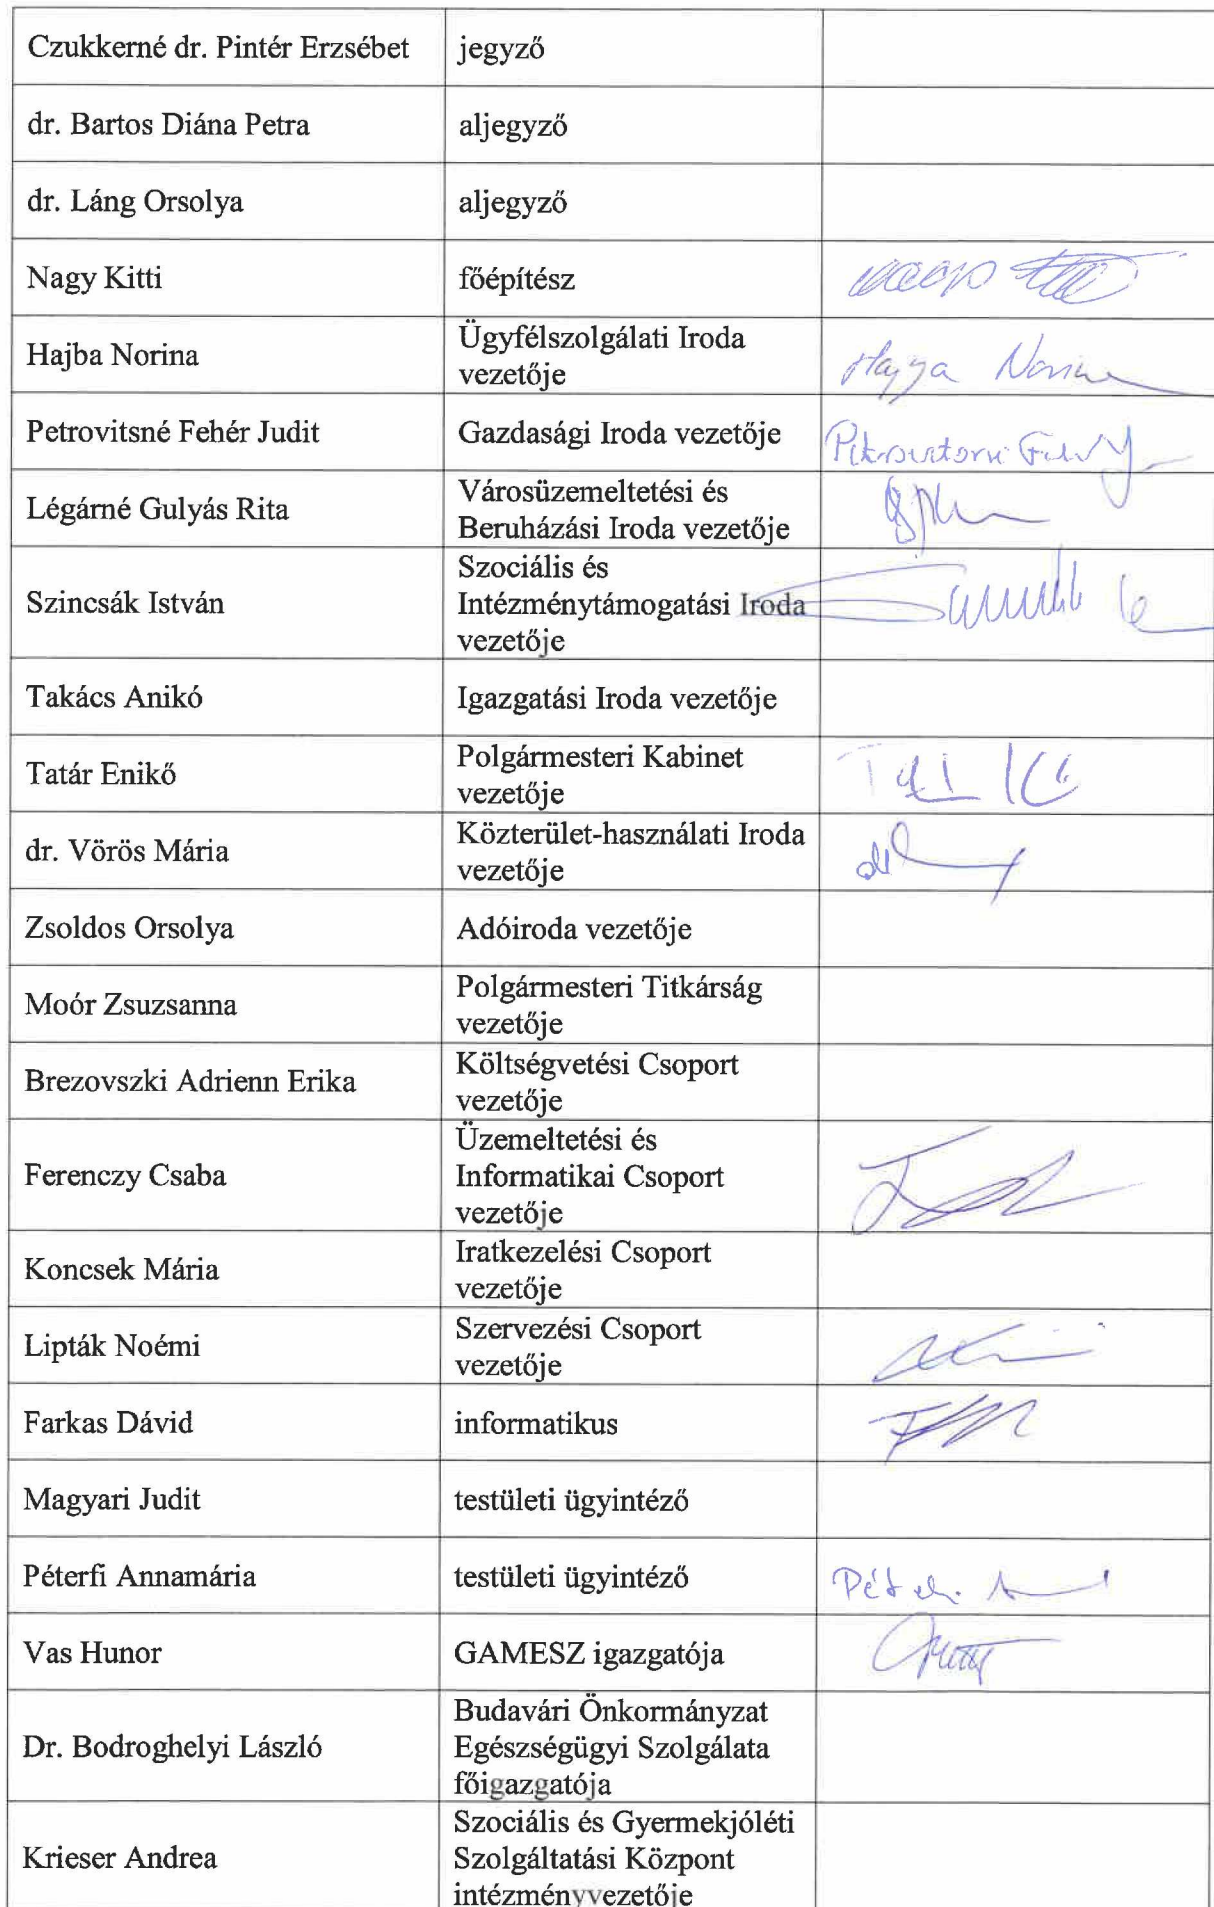 Czukkerné dr. Pintér Erzsébet jegyző
dr. Bartos Diána Petra aljegyző
dr. Láng Orsolya aljegyző
Nagy Kitti főépítész
Hajba Norina Ügyfélszolgálati Iroda
vezetője
Petrovitsné Fehér Judit Gazdasági Iroda vezetője
Légárné Gulyás Rita Városüzemeltetési és
Beruházási Iroda vezetője
Szincsák István Szociális és
Intézménytámogatási Iroda
vezetője
Takács Anikó Igazgatási Iroda vezetője
Tatár Enikő Polgármesteri Kabinet
vezetője
dr. Vörös Mária Közterület-használati Iroda
vezetője
Zsoldos Orsolya Adóiroda vezetője
Moór Zsuzsanna Polgármesteri Titkárság
vezetője
Brezovszki Adrienn Erika Költségvetési Csoport
vezetője
Ferenczy Csaba Üzemeltetési és
Informatikai Csoport
vezetője
Koncsek Mária Iratkezelési Csoport
vezetője
Lipták Noémi Szervezési Csoport
vezetője
Farkas Dávid informatikus
Magyari Judit testületi ügyintéző
Péterfi Annamária testületi ügyintéző
Vas Hunor GAMESZ igazgatója
Dr. Bodroghelyi László Budavári Önkormányzat
Egészségügyi Szolgálata
főigazgatója
Krieser Andrea Szociális és Gyermekjóléti
Szolgáltatási Központ
intézményvezetője